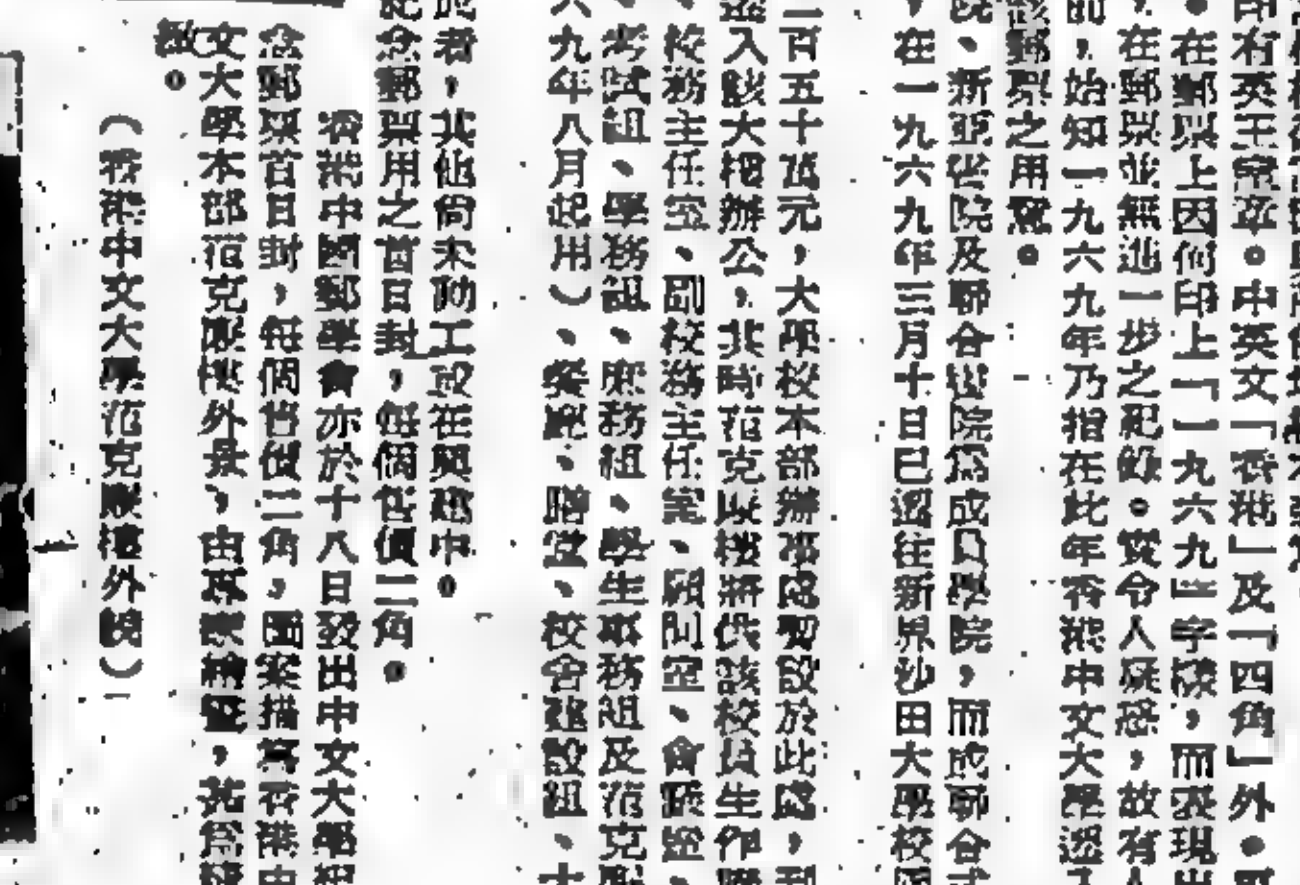 印有英王皇冠。中英文「香港」及「四角」外。
。在郵票上因何印上「一九六九」字樣，而表現出
，在郵票並無進一步之紀錄。實令人疑惑，故有人
前，始知一九六九年乃指在此年香港中文大學遷
該郵票之用意。
院、新亞書院及聯合書院為成員學院，而成聯合式
，在一九六九年三月十日已遷往新界沙田大學校
二百五十萬元，大學校本部辦事處暫設於此處，到
遷入該大樓辦公，此時范克廉樓將供該校員生作
、校務主任室、副校務主任室、顧問室、會議室、
、考試組、學務組、庶務組、學生事務組及范克廉
六九年八月起用）、餐廳、膳堂、校舍建設組、
於者，其他尚未動工或在興建中。
紀念郵票用之首日封，每個售價二角。
香港中國郵學會亦於十八日發出中文大學紀
念郵票首日封，每個售價二角，圖案描寫香港中
文大學本部范克廉樓外景，由
緻。
（香港中文大學范克廉樓外貌）